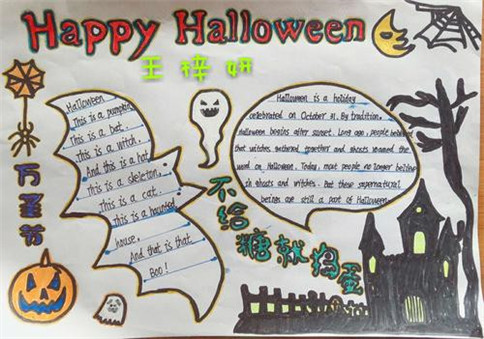 Happy Halloween
王梓妍
万圣节
Halloween
This is a pumpkin
This is a bat.
This is a witch.
And this is a hat
This is a skeleton.
This is a cat.
This is a haunted
house.
And that is that
Boo!
Halloween is a holiday
celebrated on October 31. By tradition,
Halloween begins after sunset. Long ago, people believed
that witches gathered together and ghosts roamed the
word on Halloween. Today, most people no longer believe
in ghosts and witches. But these supernatural
beings are still a part of Halloween
不给糖就捣蛋